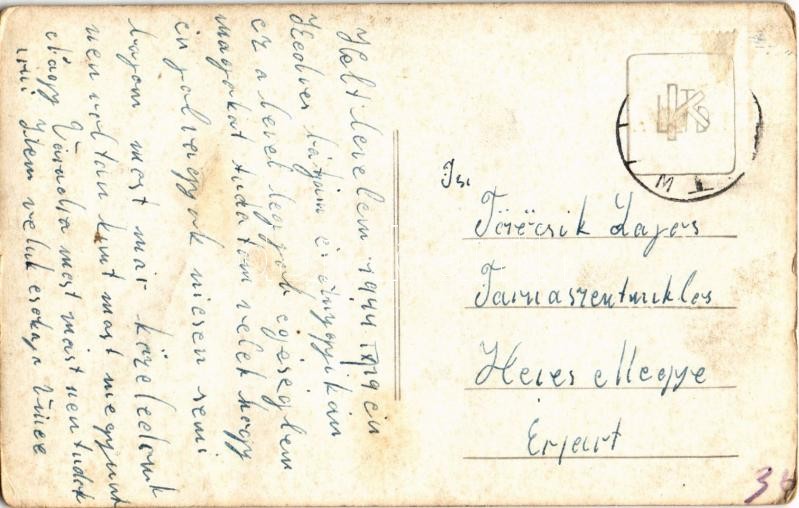 Kelt levelem 1944 IX 19 én
Kedves bátyám és ángyyikám
ez a levél legjob egéségben
magokat tudatom velek hogy
én jol vagyok nicsen semi
bajom most már közeledünk
nem voltam kint most megyunk
Nagy Váradra most mást nem tudok
irni Isten veluk csokoja Vince
Ts.
Töröcsik Lajos
Tarnaszentmiklos
Heves Megye
Erjart
34